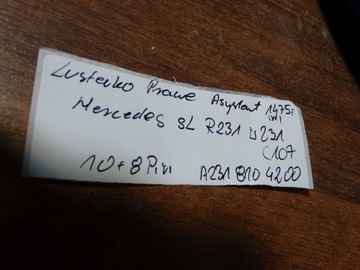 Lusterko Prawe Asystent 1475z
(W)
Mercedes SL R231 W231
C107
10+8 Pin A231 810 4200